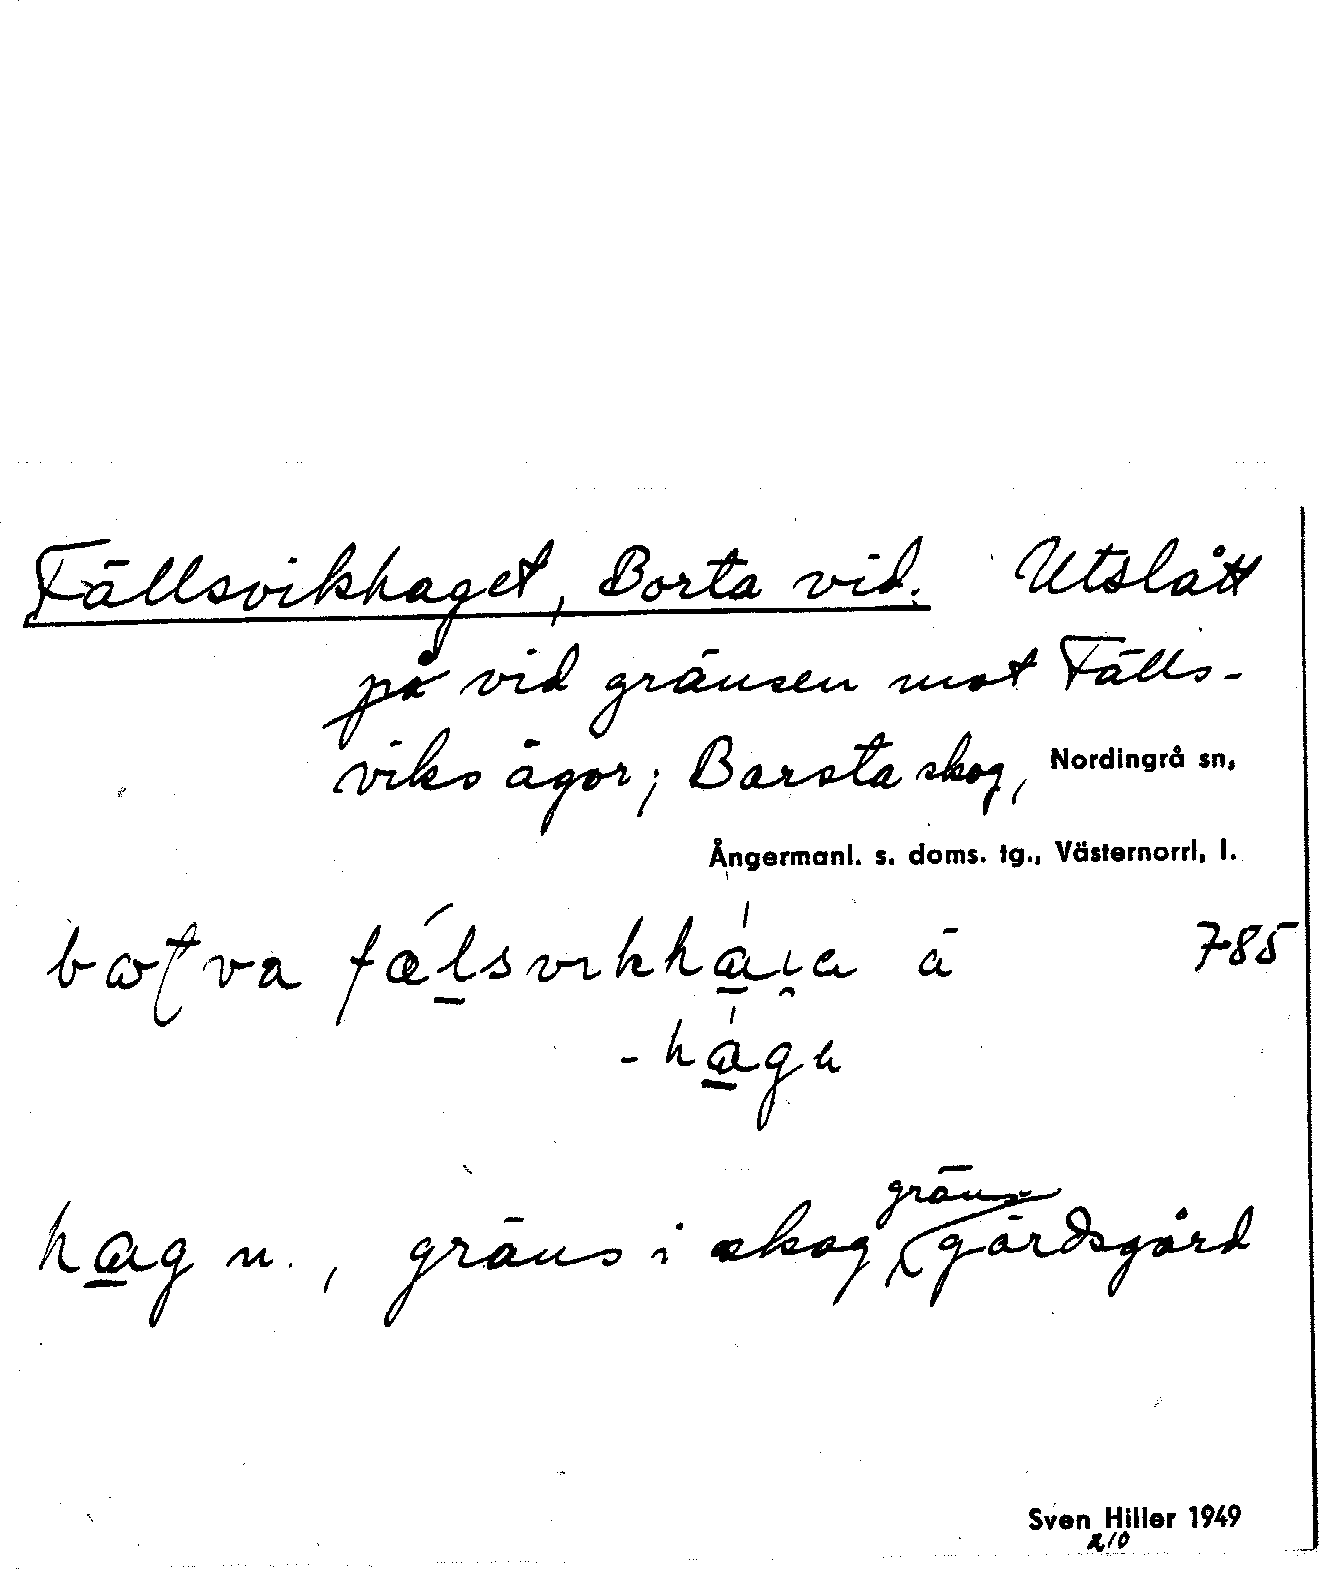 Fällsvikhaget, Borta vid. Utslått
på vid gränsen mot Fälls-
viks ägor; Barsta skog, Nordingrå sn,
Ångermanl. s. doms. tg., Västernorrl. l.
785
hag n., gräns i skog, gräns gärdsgård
Sven Hiller 1949
210